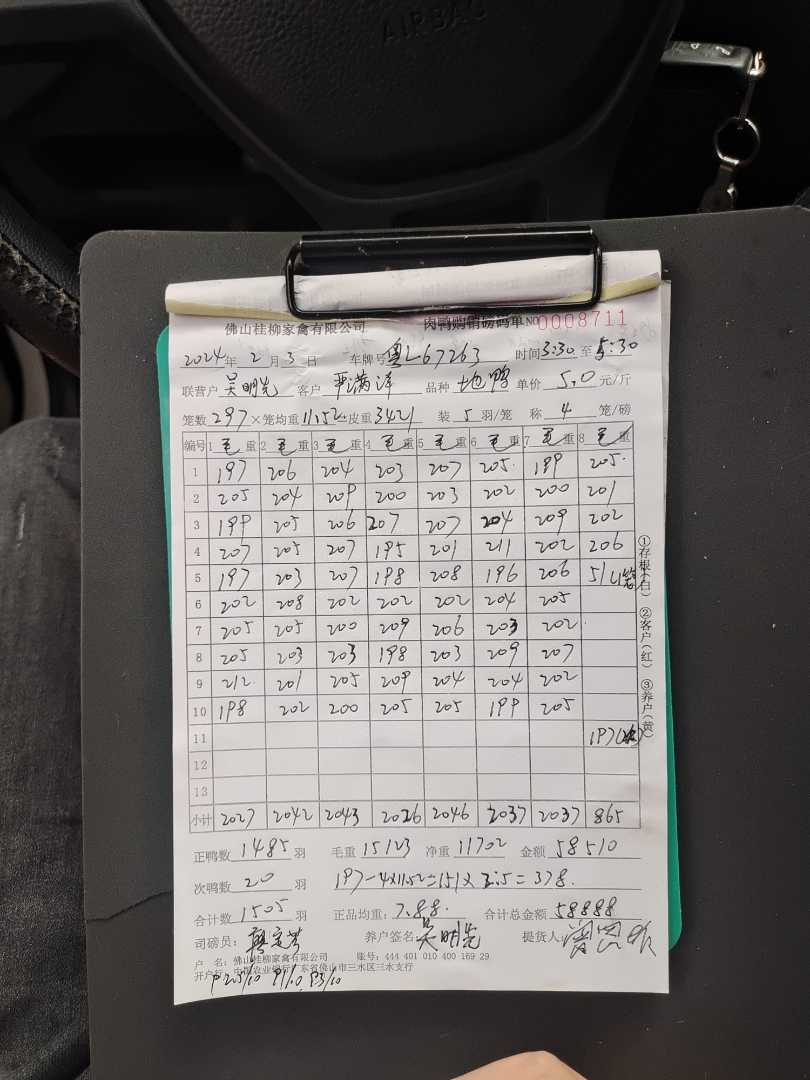 AIRBAG
佛山桂柳家禽有限公司 肉鸭购销磅码单 NO 0008711
2024年 2月 3日 车牌号 粤L67263 时间 3:30 至 5:30
联营户 吴明先 客户 严满洋 品种 地鸭 单价 5.0 元/斤
笼数 297 ×笼均重 11.52 =皮重 3421 装 5 羽/笼 称 4 笼/磅
编号 1 毛重 2 毛重 3 毛重 4 毛重 5 毛重 6 毛重 7 毛重 8 毛重
1 197 206 204 203 207 205 199 205
2 205 204 209 200 203 202 200 201
3 199 205 206 207 207 204 209 202
4 207 205 207 195 201 211 202 206
5 197 203 207 198 208 196 206 51(1笼)
6 202 208 202 202 202 204 205
7 205 205 200 209 206 203 202
8 205 203 203 198 203 209 207
9 212 201 205 209 204 204 202
10 198 202 200 205 205 199 205
11 197(次)
12
13
小计 2027 2042 2043 2026 2046 2037 2037 865
①存根(白) ②客户(红) ③养户(黄)
正鸭数 1485 羽 毛重 15123 净重 11702 金额 58510
次鸭数 20 羽 197-4×11.52=151×2.5=378.
合计数 1505 羽 正品均重: 7.88. 合计总金额 58888
司磅员: 养户签名: 吴明先 提货人:
户 名: 佛山桂柳家禽有限公司 账号: 444 401 010 400 169 29
开户行: 中国农业银行广东省佛山市三水区三水支行